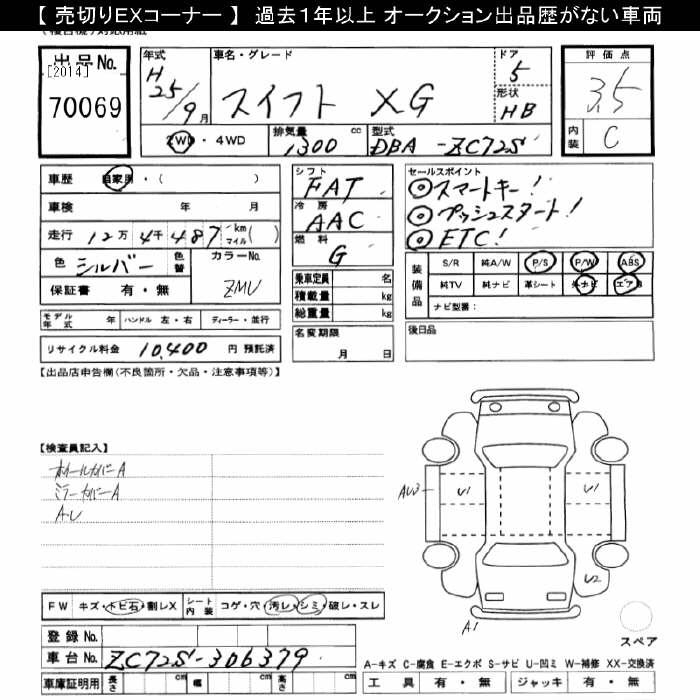 【 売切りEXコーナー 】 過去１年以上 オークション出品歴がない車両
出品No.
[2014]
70069
年式
H
25/9月
車名・グレード
スイフト XG
ドア
5
形状
HB
評価点
3.5
内装
C
2WD・4WD
排気量
1300 cc
型式
DBA -ZC72S
車歴 自家用・( )
車検 年 月
走行 12万 4千 487 km マイル( )
色 シルバー 色替
カラーNo.
ZMU
保証書 有・無
モデル年式 年 ハンドル 左・右 ディーラー・並行
リサイクル料金 10,400 円 預託済
シフト
FAT
冷房
AAC
燃料
G
乗車定員 名
積載量 kg
総重量 kg
名変期限
月 日
セールスポイント
◎スマートキー!
◎プッシュスタート!
◎ETC!
装備品
S/R 純A/W P/S P/W ABS
純TV 純ナビ 革シート 外ナビ エアB
ナビ型番:
後日品
【出品店申告欄(不良箇所・欠品・注意事項等)】
【検査員記入】
ホイールカバーA
ミラーカバーA
A・U
AU3
U1
U1
U2
A1
スペア
FW キズ・トビ石・割レX
シート内装 コゲ・穴・汚レ・シミ・破レ・スレ
登録No.
車台No. ZC72S-306379
車庫証明用 長さ cm 幅 cm 高さ cm
A-キズ C-腐食 E-エクボ S-サビ U-凹ミ W-補修 XX-交換済
工具 有・無 ジャッキ 有・無